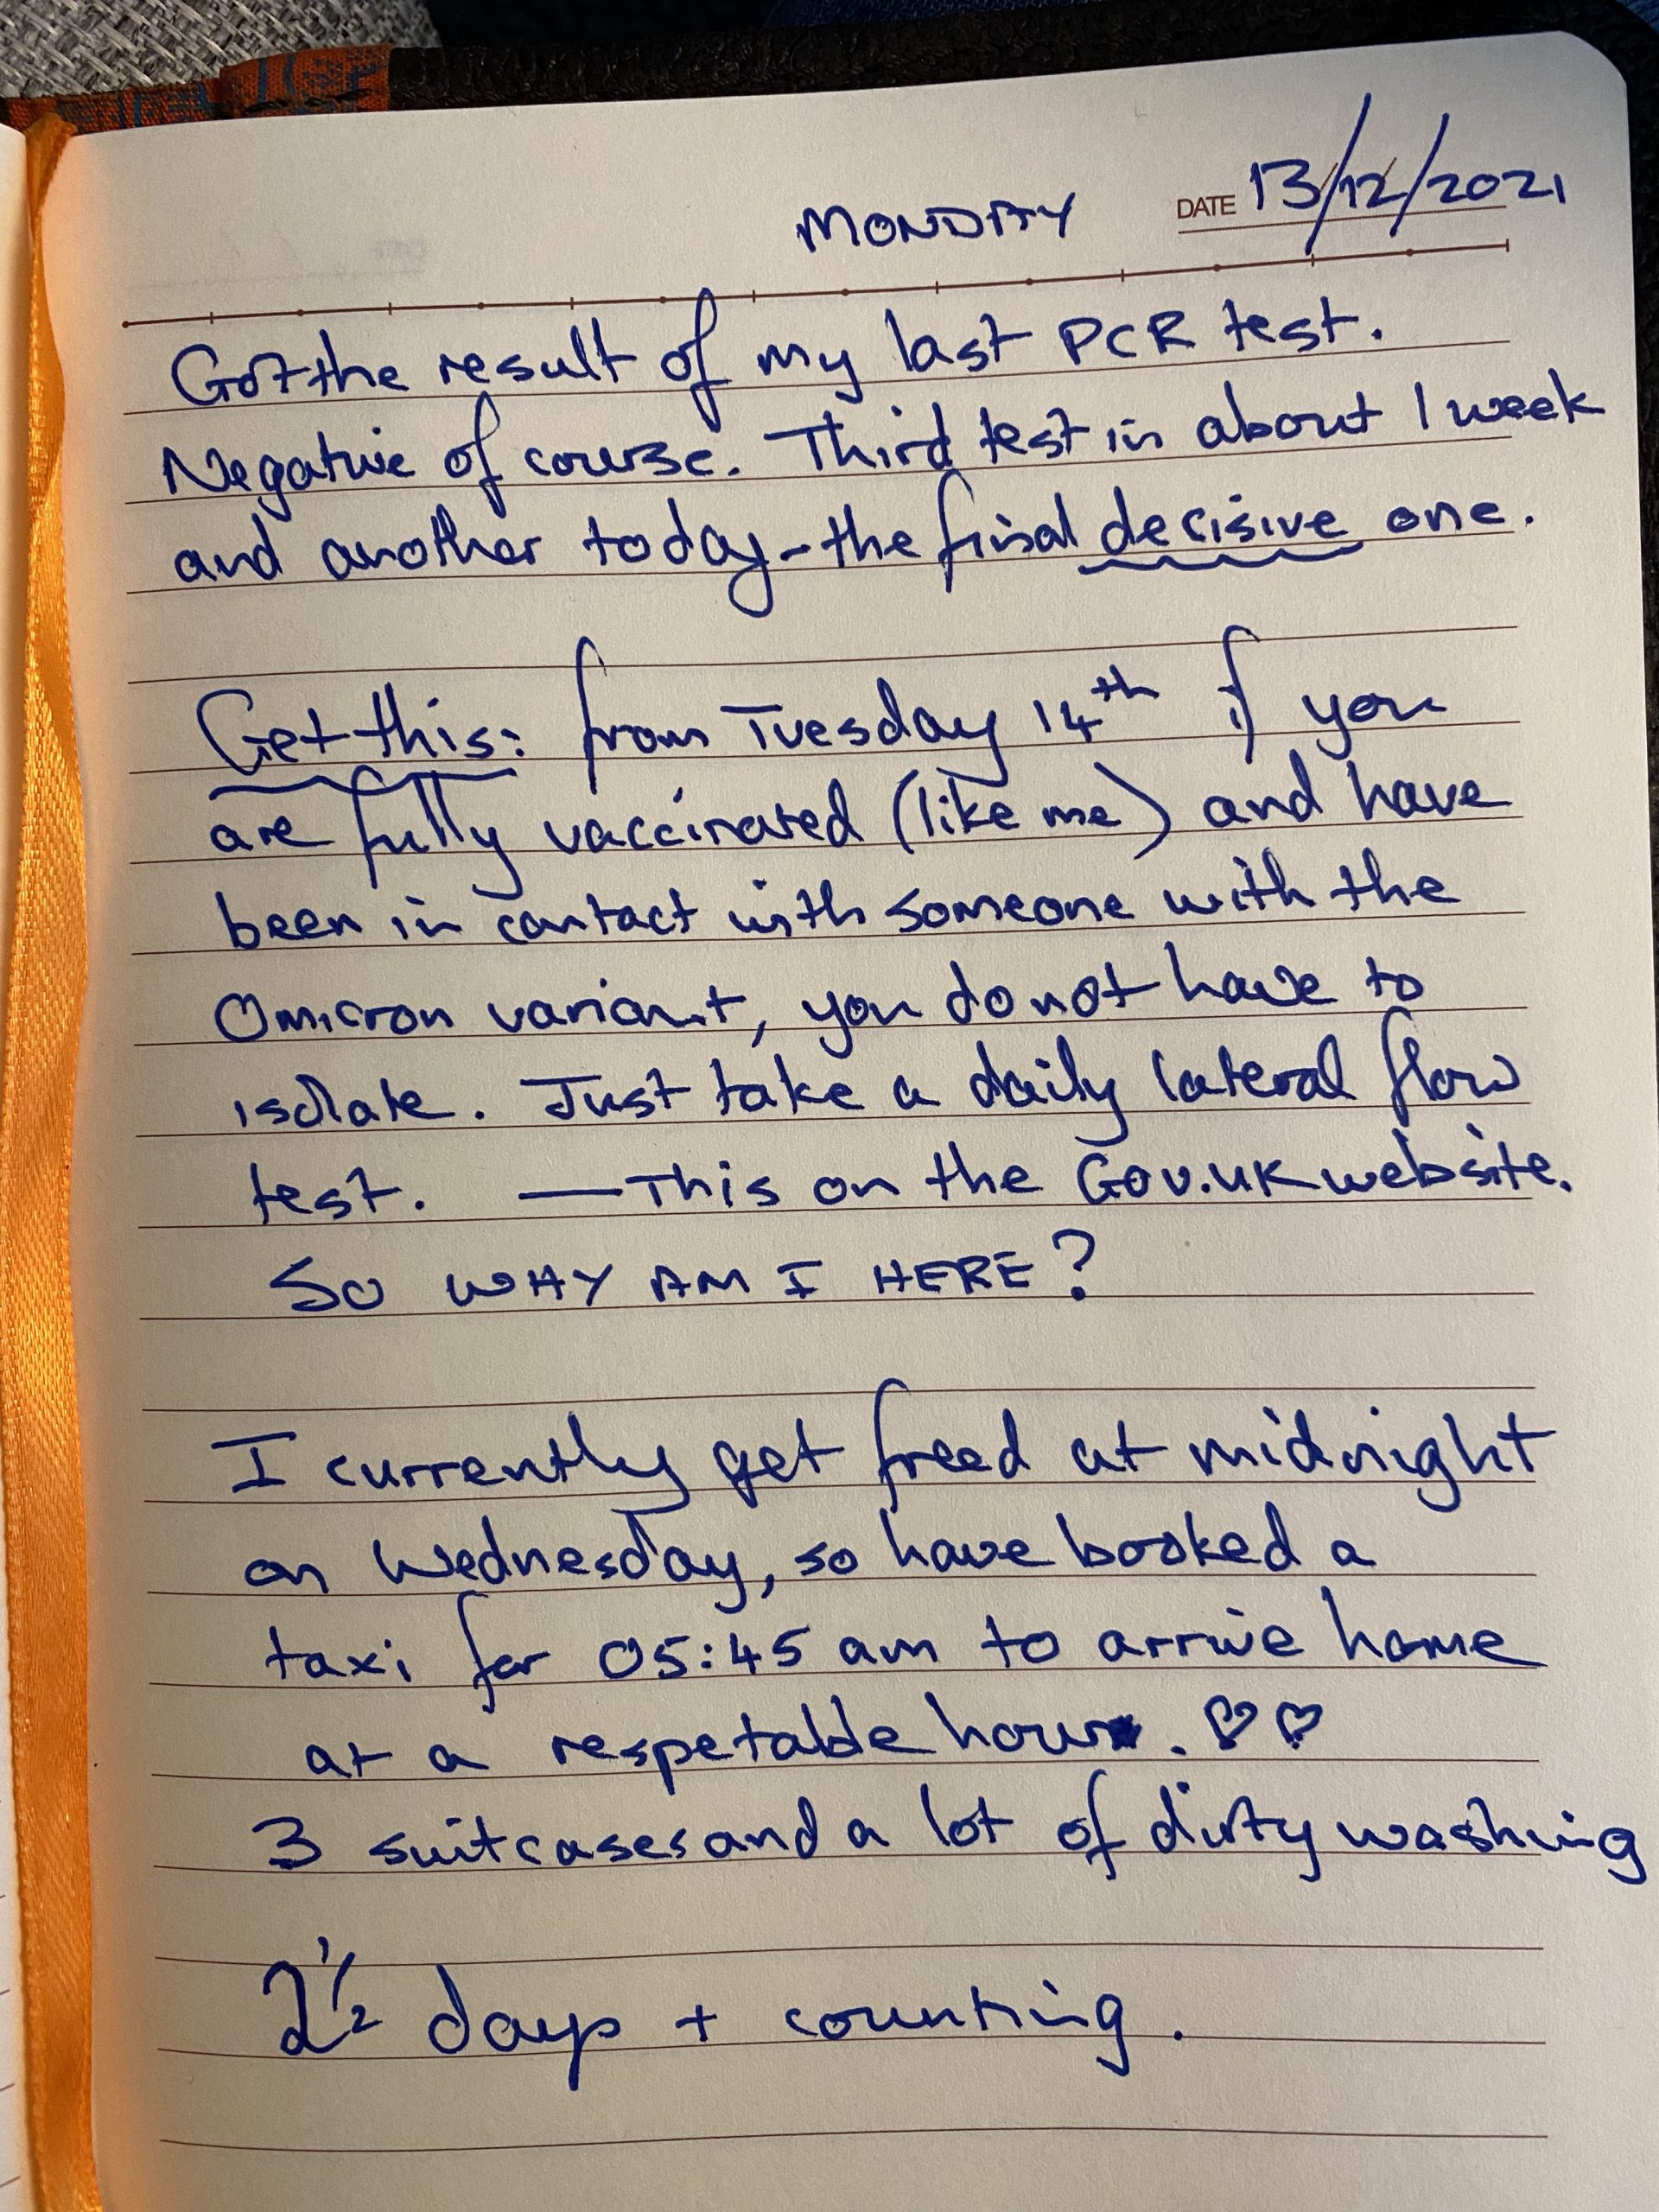 MONDAY DATE 13/12/2021
Got the result of my last PCR test.
Negative of course. Third test in about 1 week
and another today - the final decisive one.
Get this: from Tuesday 14th if you
are fully vaccinated (like me) and have
been in contact with someone with the
Omicron variant, you do not have to
isolate. Just take a daily lateral flow
test. — This on the Gov.UK website.
SO WHY AM I HERE?
I currently get freed at midnight
on Wednesday, so have booked a
taxi for 05:45 am to arrive home
at a respetable hour. ♡♡
3 suitcases and a lot of dirty washing
2 1/2 days + counting.